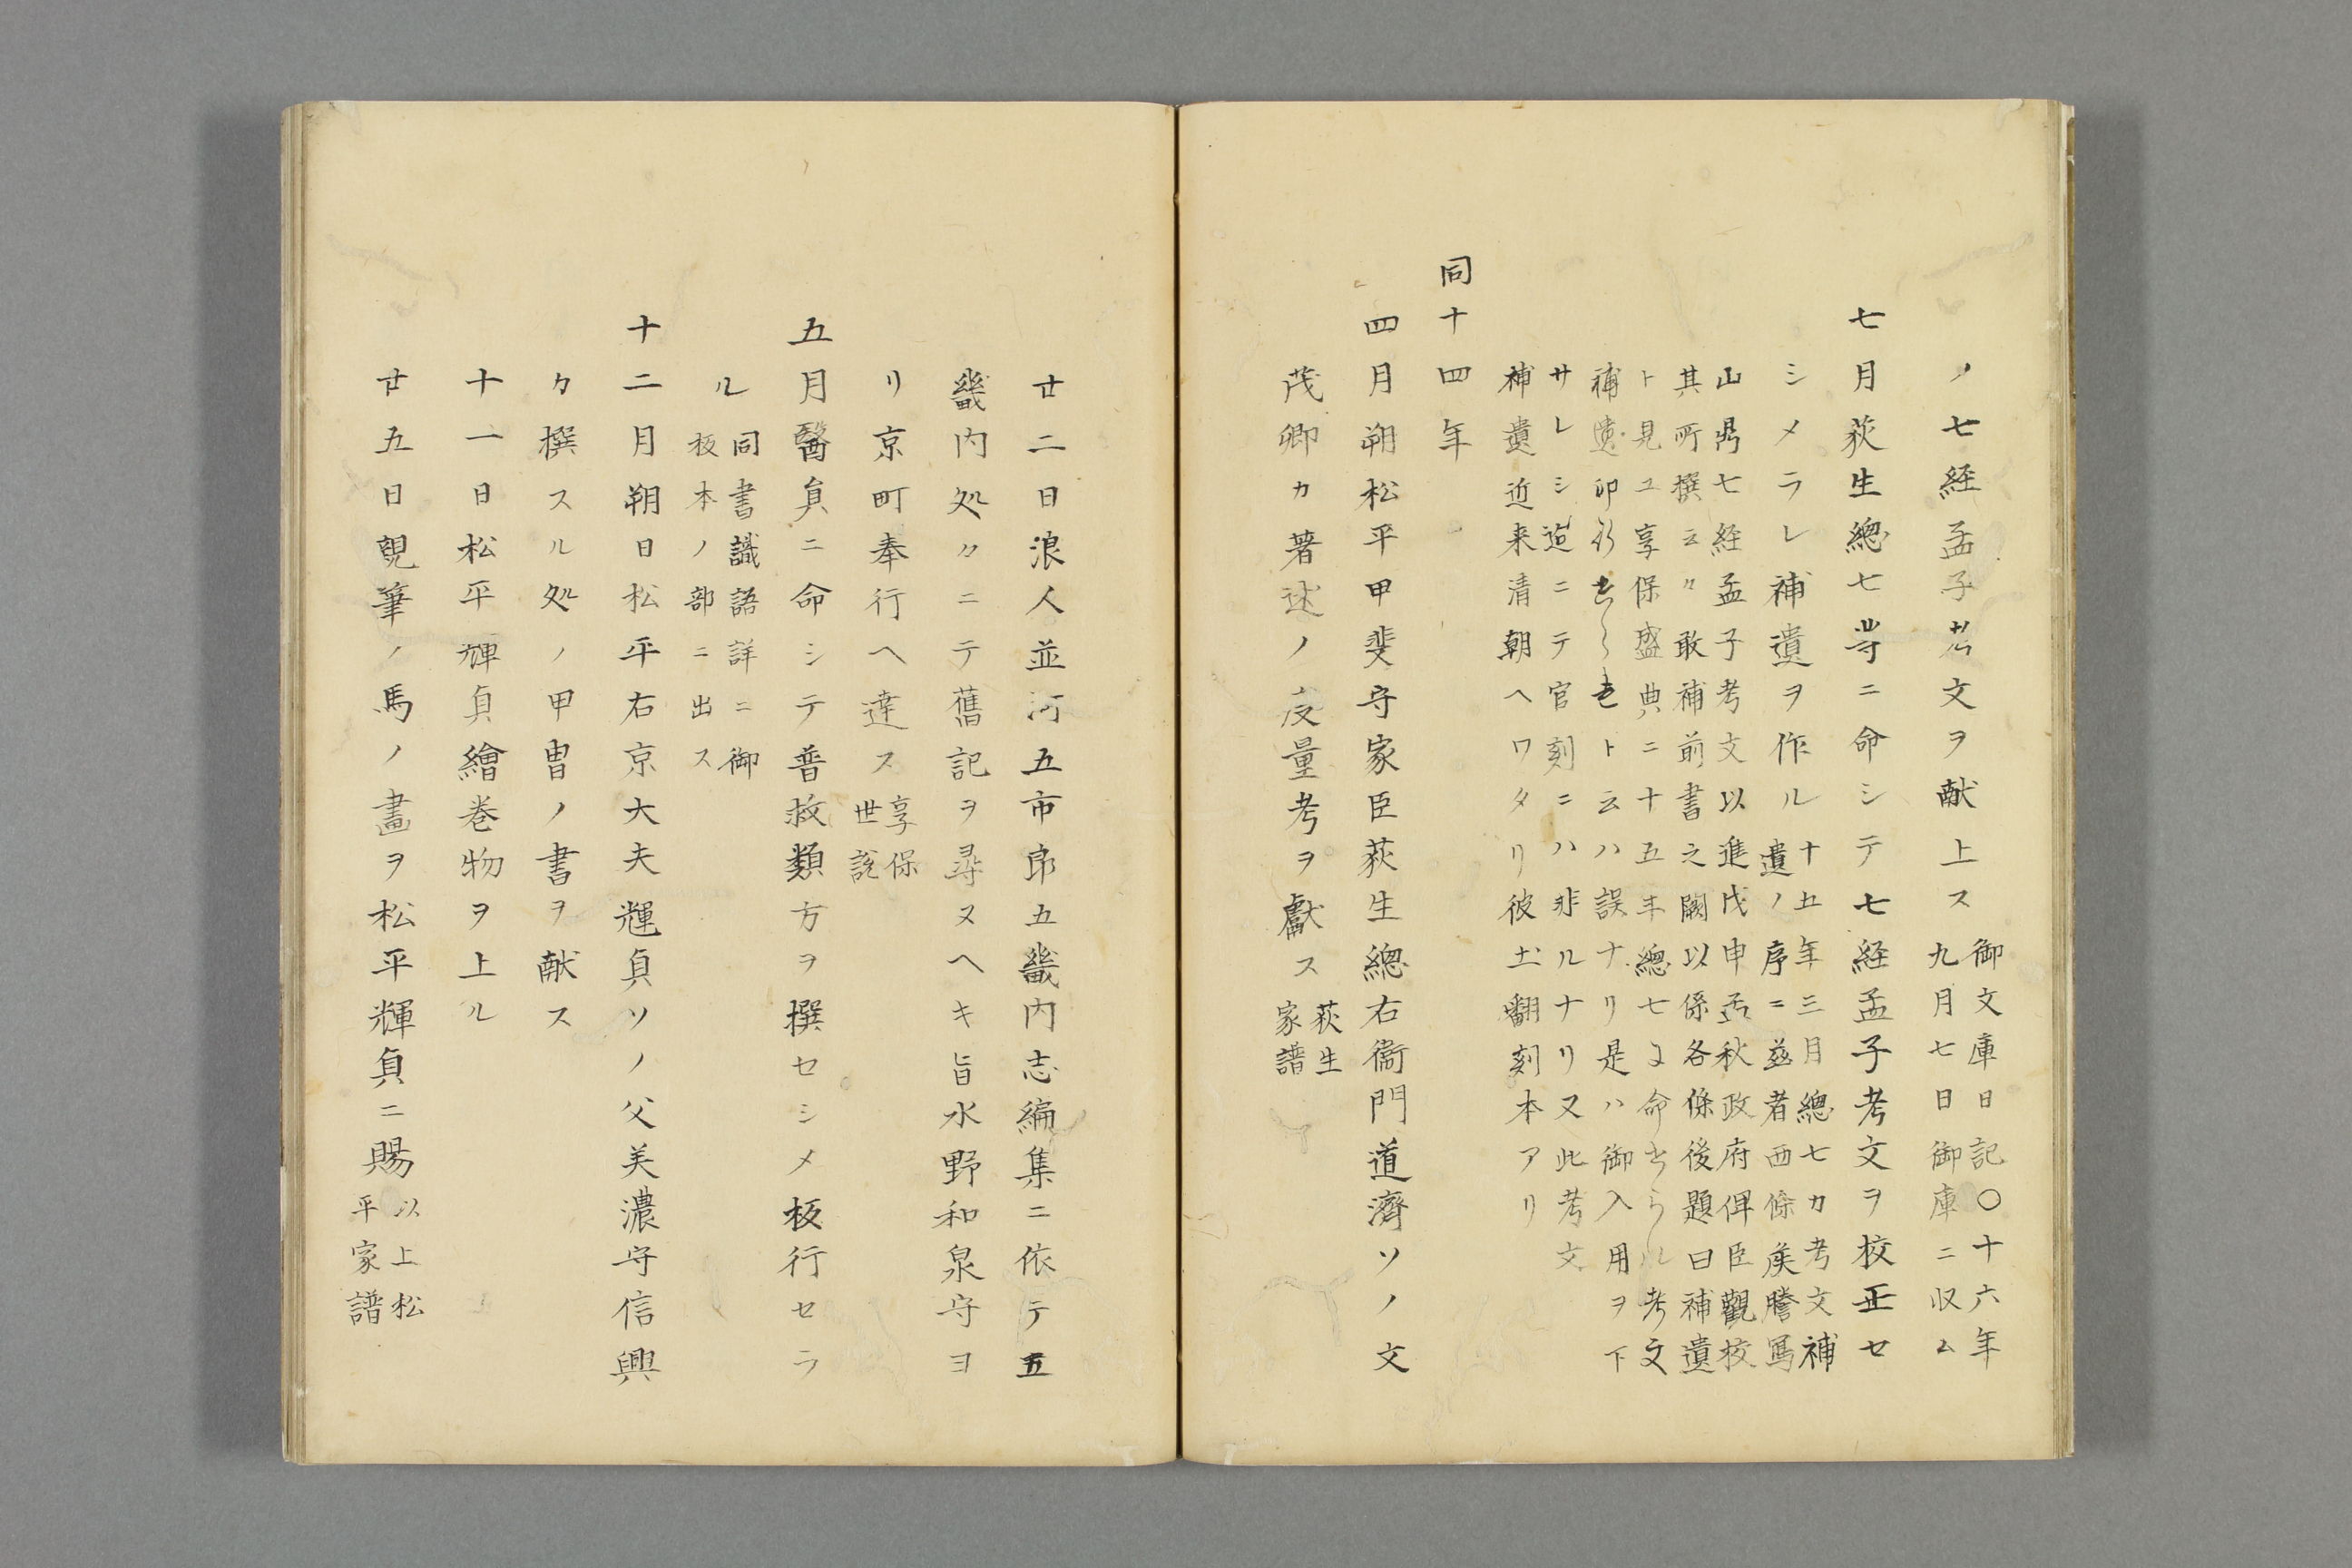 ノ七経孟子考文ヲ献上ス
御文庫日記〇十六年
九月七日御庫ニ収ム
七月荻生總七等ニ命シテ七経孟子考文ヲ校正セ
シメラレ補遺ヲ作ル
十五年三月總七カ考文補
遺ノ序ニ茲者西條矦謄寫
山鼎七経孟子考文以進戊申孟秋政府俾臣觀校
其所撰云々敢補前書之闕以係各條後題曰補遺
ト見ユ享保盛典ニ十五年總七に命せらル考文
補遺印行せらるト云ハ誤ナリ是ハ御入用ヲ下
サレシ迠ニテ官刻ニハ非ルナリ又此考文
補遺近来清朝ヘワタリ彼土翻刻本アリ
同十四年
四月朔松平甲斐守家臣荻生總右衞門道濟ソノ父
茂卿カ著述ノ度量考ヲ獻ス
荻生
家譜
廿二日浪人並河五市郎五畿内志編集ニ依テ五
畿内処々ニテ舊記ヲ尋ヌヘキ旨水野和泉守ヨ
リ京町奉行ヘ達ス
享保
世説
五月醫員ニ命シテ普救類方ヲ撰セシメ板行セラ
ル
同書識語詳ニ御
板本ノ部ニ出ス
十二月朔日松平右京大夫輝貞ソノ父美濃守信興
カ撰スル処ノ甲冑ノ書ヲ献ス
十一日松平輝貞繪巻物ヲ上ル
廿五日親筆ノ馬ノ畵ヲ松平輝貞ニ賜
以上松
平家譜